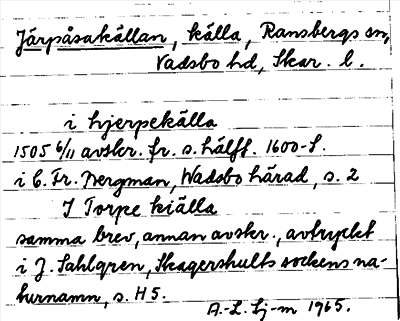 Järpåsakällan, källa, Ransbergs sn,
Vadsbo hd, Skar. l.
i hjerpekälla
1505 6/11 avskr. fr. s. hälft. 1600-t.
i C. Fr. Bergman, Wadsbo härad, s. 2
I Torpe kiälla
samma brev, annan avskr., avtryckt
i J. Sahlgren, Skagershults sockens na-
turnamn, s. 45.
A.-L. Lj-m 1965.